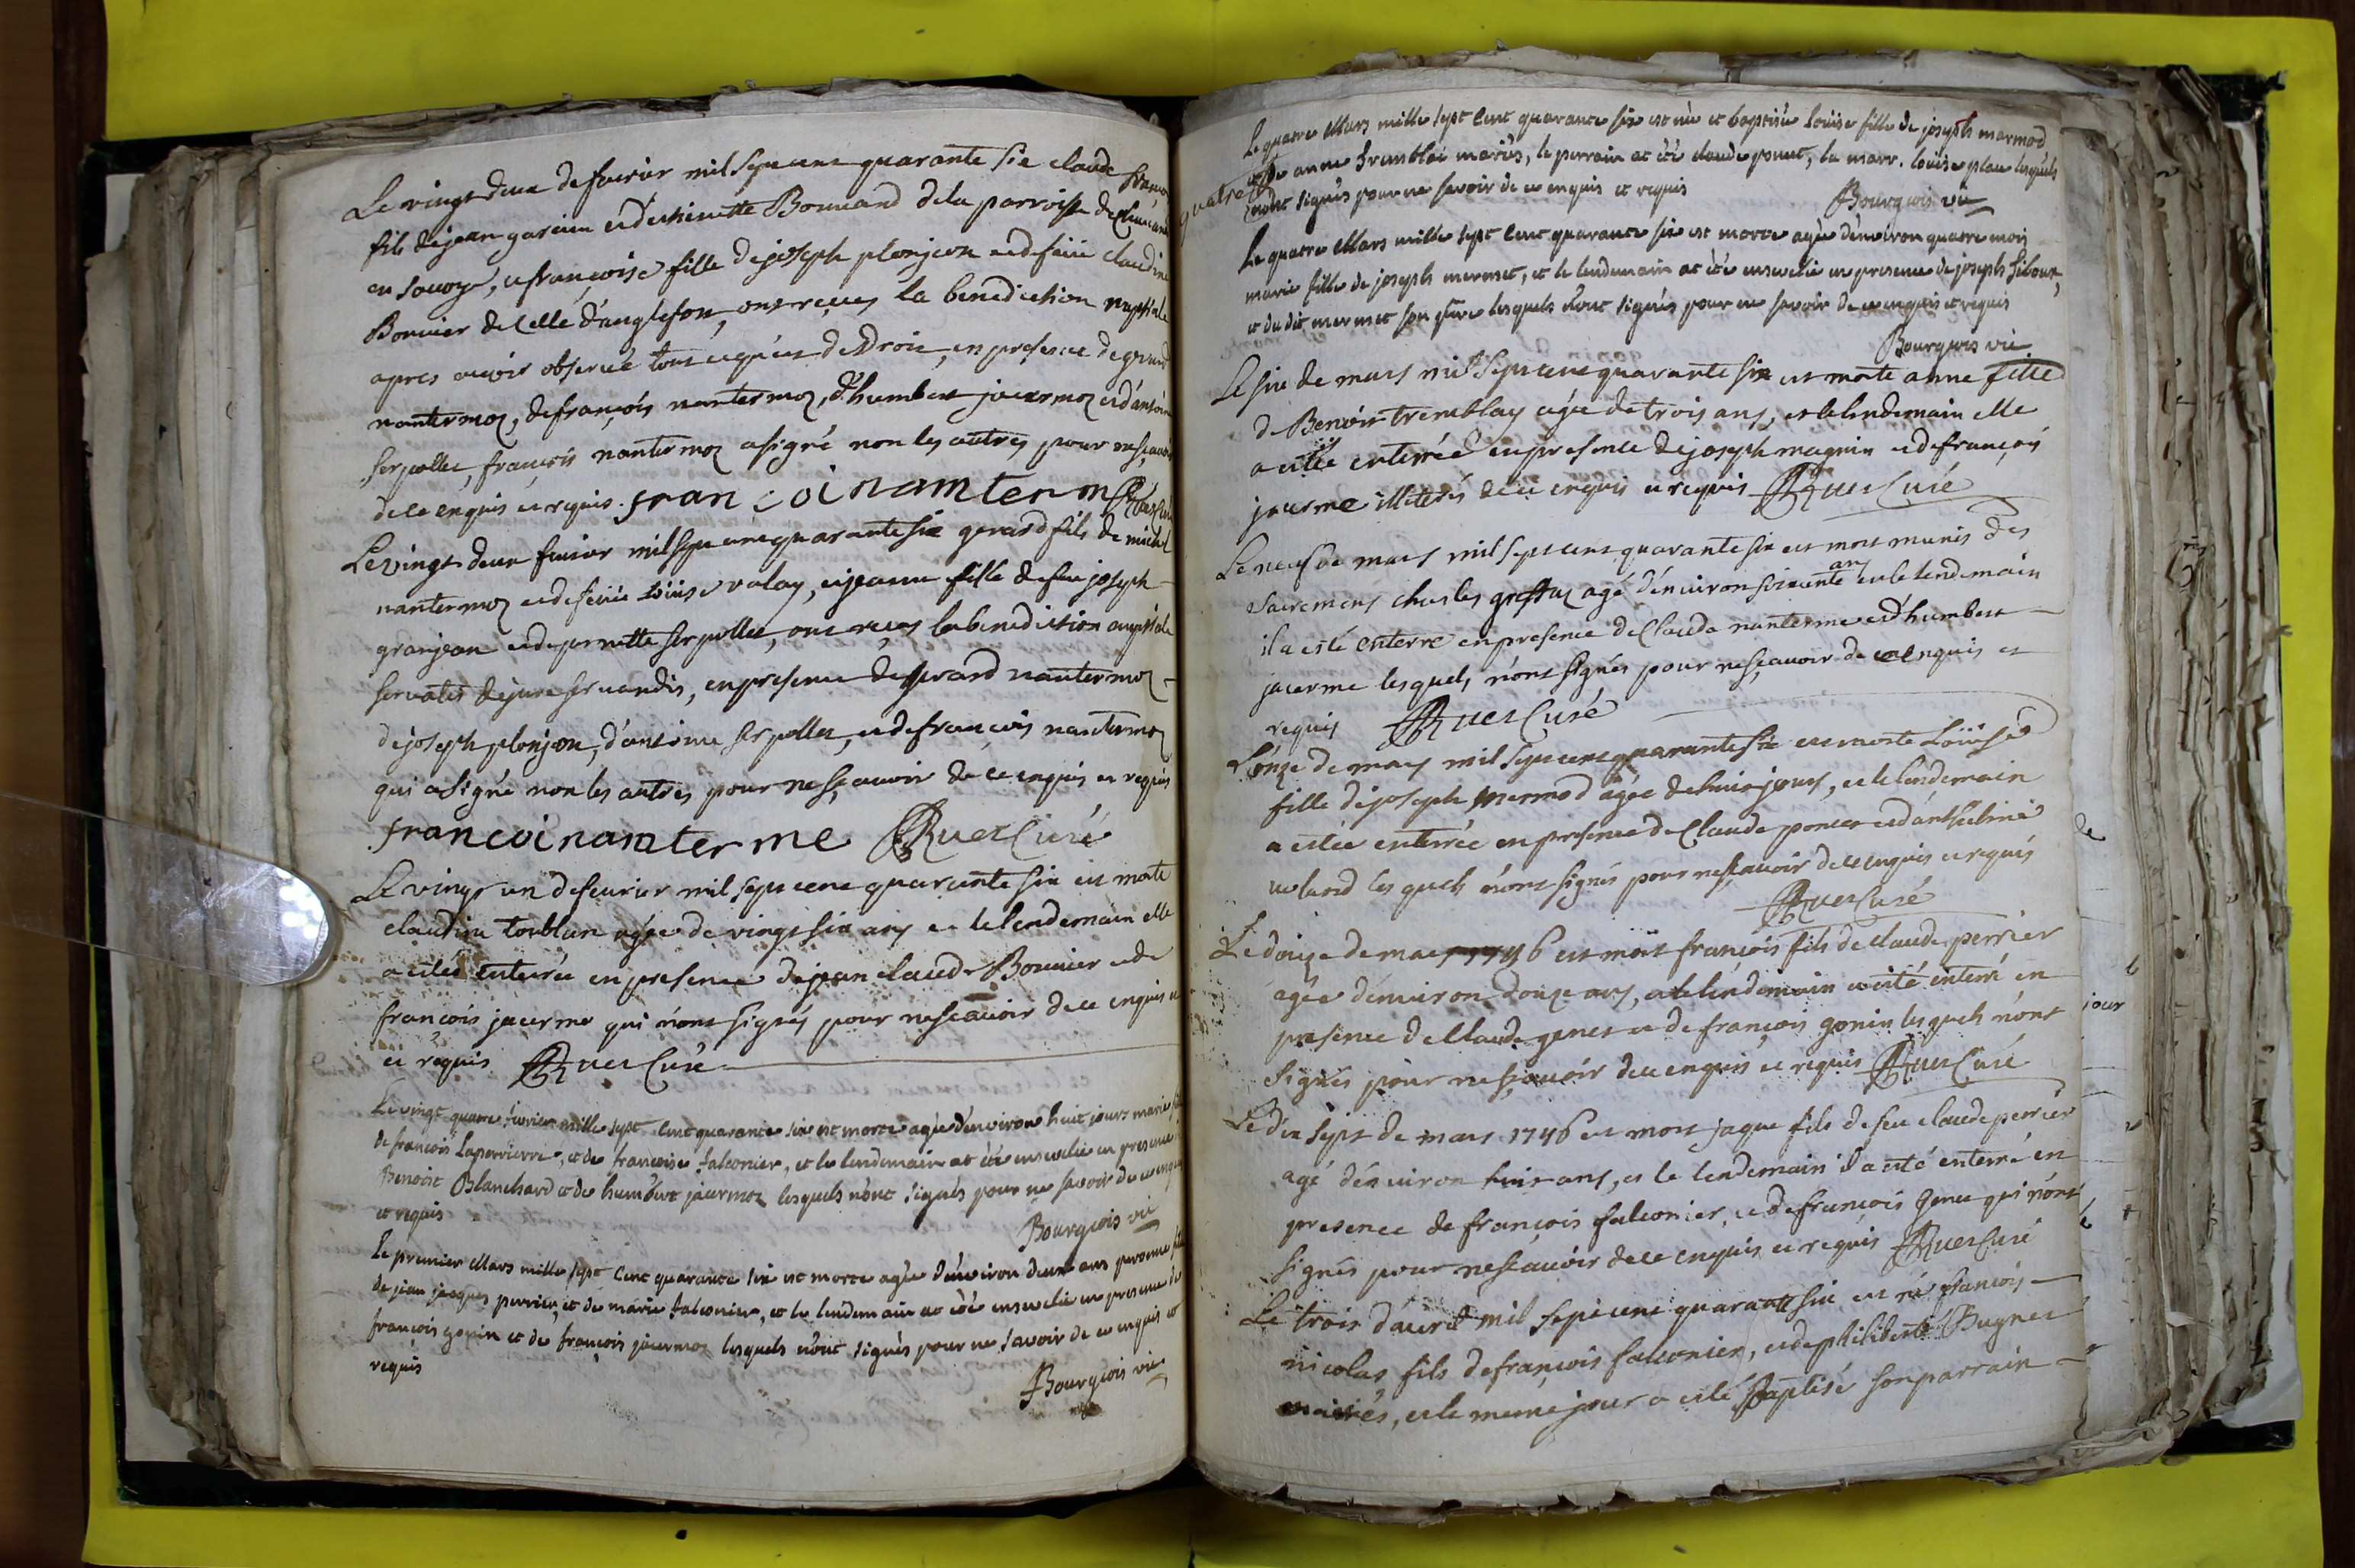 Le vingt deux de fevrier mil sept cent quarante six claude françois
fils de jean garcin et d'ethiennette Bonnard de la parroisse de
en savoye, et françoise fille de joseph plonjeon et de feüe claudine
Bonnier de celle d'anglefort, ont reçues la benediction nuptiale
apres avoir observé tout ce qui est de Droit, en presence de gerard
nantermoz, de françois nantermoz, d'humbert jacermoz et d'antoine
serpollet, françois nantermoz a signé non les autres pour ne sçavoir
de ce enquis et requis. francoi namterm Ruet Curé
Le vingt deux fevrier mil sept cent quarante six gerard fils de michel
nantermoz et de feüe loüise valay, et jeanne fille de feu joseph
granjean et de pernette serpollet, ont reçus la benediction nuptiale
servatis de jure servandis, en presence de gerard nantermoz
de joseph plonjeon, d'antoine serpollet, et de françois nantermoz
qui a signé non les autres pour ne sçavoir de ce enquis et requis
francoi namterme Ruet Curé
Le vingt un de fevrier mil sept cent quarante six est morte
claudine torblan agée de vingt six ans et le lendemain elle
a estée enterrée en presence de jean claude Bonnier et de
françois jacerme qui n'ont signés pour ne sçavoir de ce enquis
et requis Ruet Curé
Le vingt quatre fevrier mille sept cent quarante six est morte agée d'environ huit jours marie fille
de françois Laperrierre, et de françoise falconier, et le lendemain at été ensevelie en presence de
Benoist Blanchard et de humbert jacermoz lesquels n'ont signés pour ne savoir de ce enquis
et requis
Bourgeois vic
Le premier Mars mille sept cent quarante six est morte agée d'environ deux ans peronne fille
de jean jacques perrier, et de marie falconier, et le lendemain at été ensevelie en presence de
françois gonin et de françois jacermoz lesquels n'ont signés pour ne savoir de ce enquis et
requis
Bourgeois vic
Le quatre Mars mille sept cent quarante six est née et baptisée Loüise fille de joseph marmod
et de anne tremblai mariés, le parrain at été claude ponet, la marr. loüise plan lesquels
n'ont signés pour ne savoir de ce enquis et requis
Bourgeois vic
Le quatre Mars mille sept cent quarante six est morte agée d'environ quatre mois
marie fille de joseph mermet, et le lendemain at été ensevelie en presence de joseph
et du dit mermet son pere lesquels n'ont signés pour ne savoir de ce enquis et requis
Bourgeois vic
Le six de mars mil sept cent quarante six est morte anne fille
de Benoit tremblay agée de trois ans, et le lendemain elle
a estée enterrée en presence de joseph magnin et de françois
jacerme illiterés de ce enquis et requis Ruet Curé
Le neuf de mars mil sept cent quarante six est mort munis des
sacremens charles agé d'environ soixante ans et le lendemain
il a esté enterré en presence de Claude nanterme et d'humbert
jacerme lesquels n'ont signés pour ne sçavoir de ce enquis et
requis Ruet Curé
L'onze de mars mil sept cent quarante six est morte Loüise
fille de joseph mermod agée de huit jours, et le lendemain
a estée enterrée en presence de Claude ponet et d'anthelme
voland lesquels n'ont signés pour ne sçavoir de ce enquis et requis
Ruet Curé
Le douze de mars 1746 est mort françois fils de claude perrier
agée d'environ douze ans, et le lendemain a esté enterré en
presence de Claude genet et de françois gonin lesquels n'ont
signés pour ne sçavoir de ce enquis et requis Ruet Curé
Le dix sept de mars 1746 est mort jaque fils de feu claude perrier
agé d'environ huit ans, et le lendemain il a esté enterré en
presence de françois falconier, et de françois genet qui n'ont
signés pour ne sçavoir de ce enquis et requis Ruet Curé
Le trois d'avril mil sept cent quarante six est né françois
nicolas fils de françois falconier, et de philiberte Bugnet
mariés, et le meme jour a esté Baptisé son parrain
jour